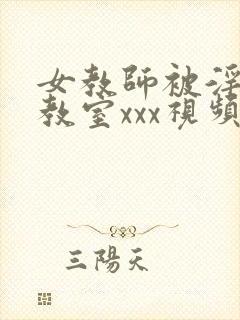 女教師被淫
教室xxx視頻
三陽天